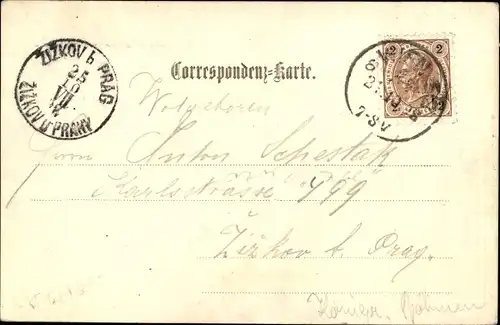 ŽIŽKOV b. PRAG
25
VII
ŽIŽKOV U PRAHY
Correspondenz-Karte.
2 2
7-8V
Wolgeboren
Herrn Anton Schestak
Karlsstrasse 499
Žižkov b. Prag.
Böhmen